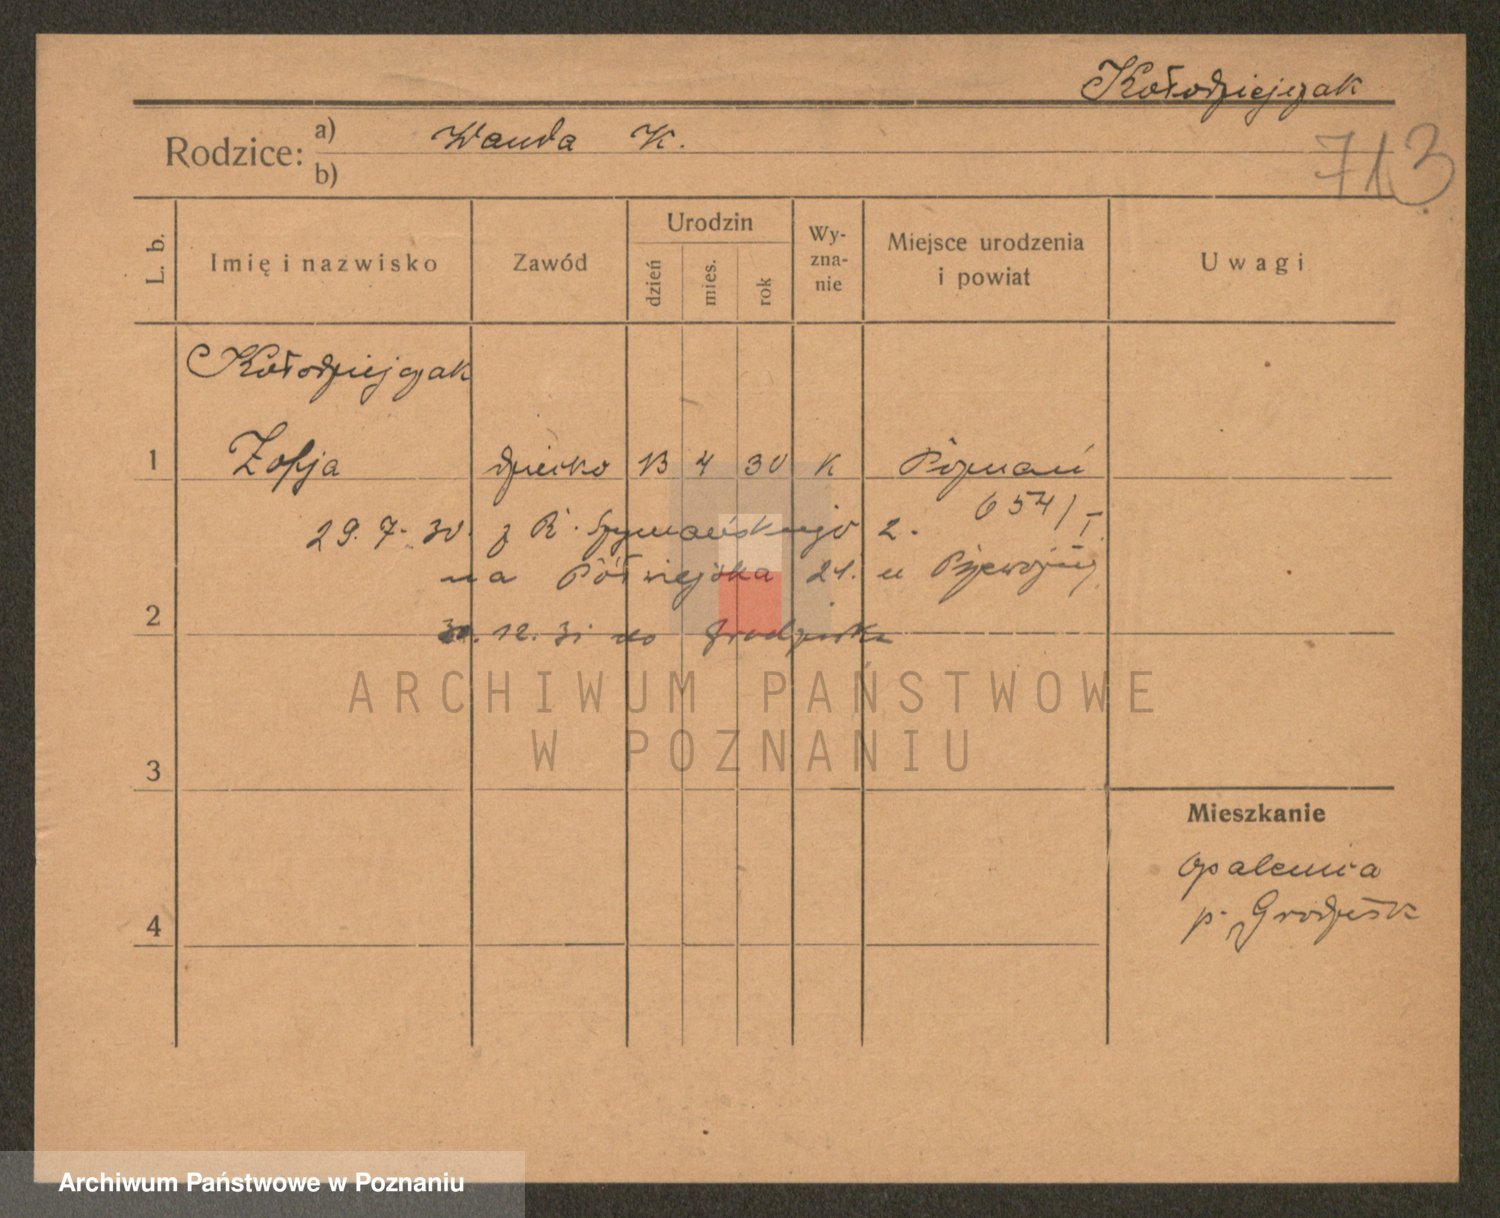 Kołodziejczak
713
Rodzice: a) Wanda K.
b)
L. b.
Imię i nazwisko
Zawód
Urodzin
dzień
mies.
rok
Wy-
zna-
nie
Miejsce urodzenia
i powiat
Uwagi
Kołodziejczak
1 Zofja dziecko 13 4 30 K Poznań
654/I
29. 7. 30. z R. Szymańskiego 2.
na Półwiejska 21. u
2
30. 12. 31 do Grodziska
ARCHIWUM PAŃSTWOWE
W POZNANIU
3
Mieszkanie
Opalenica
p. Grodzisk
4
Archiwum Państwowe w Poznaniu